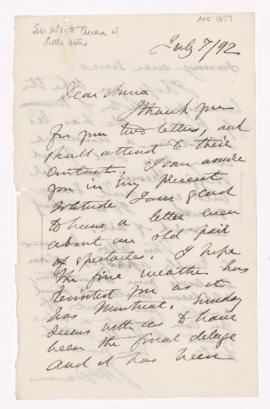 ACC 1377
July 7/92
Dear Anna
I thank you
for your two letters, and
shall attend to their
contents. I can assure
you in my present
solitude I am glad
to have a letter even
about an old pair
of spectacles. I hope
the fine weather has
visited you as it
has Montreal. Sunday
seems with us to have
been the final deluge
and it has been